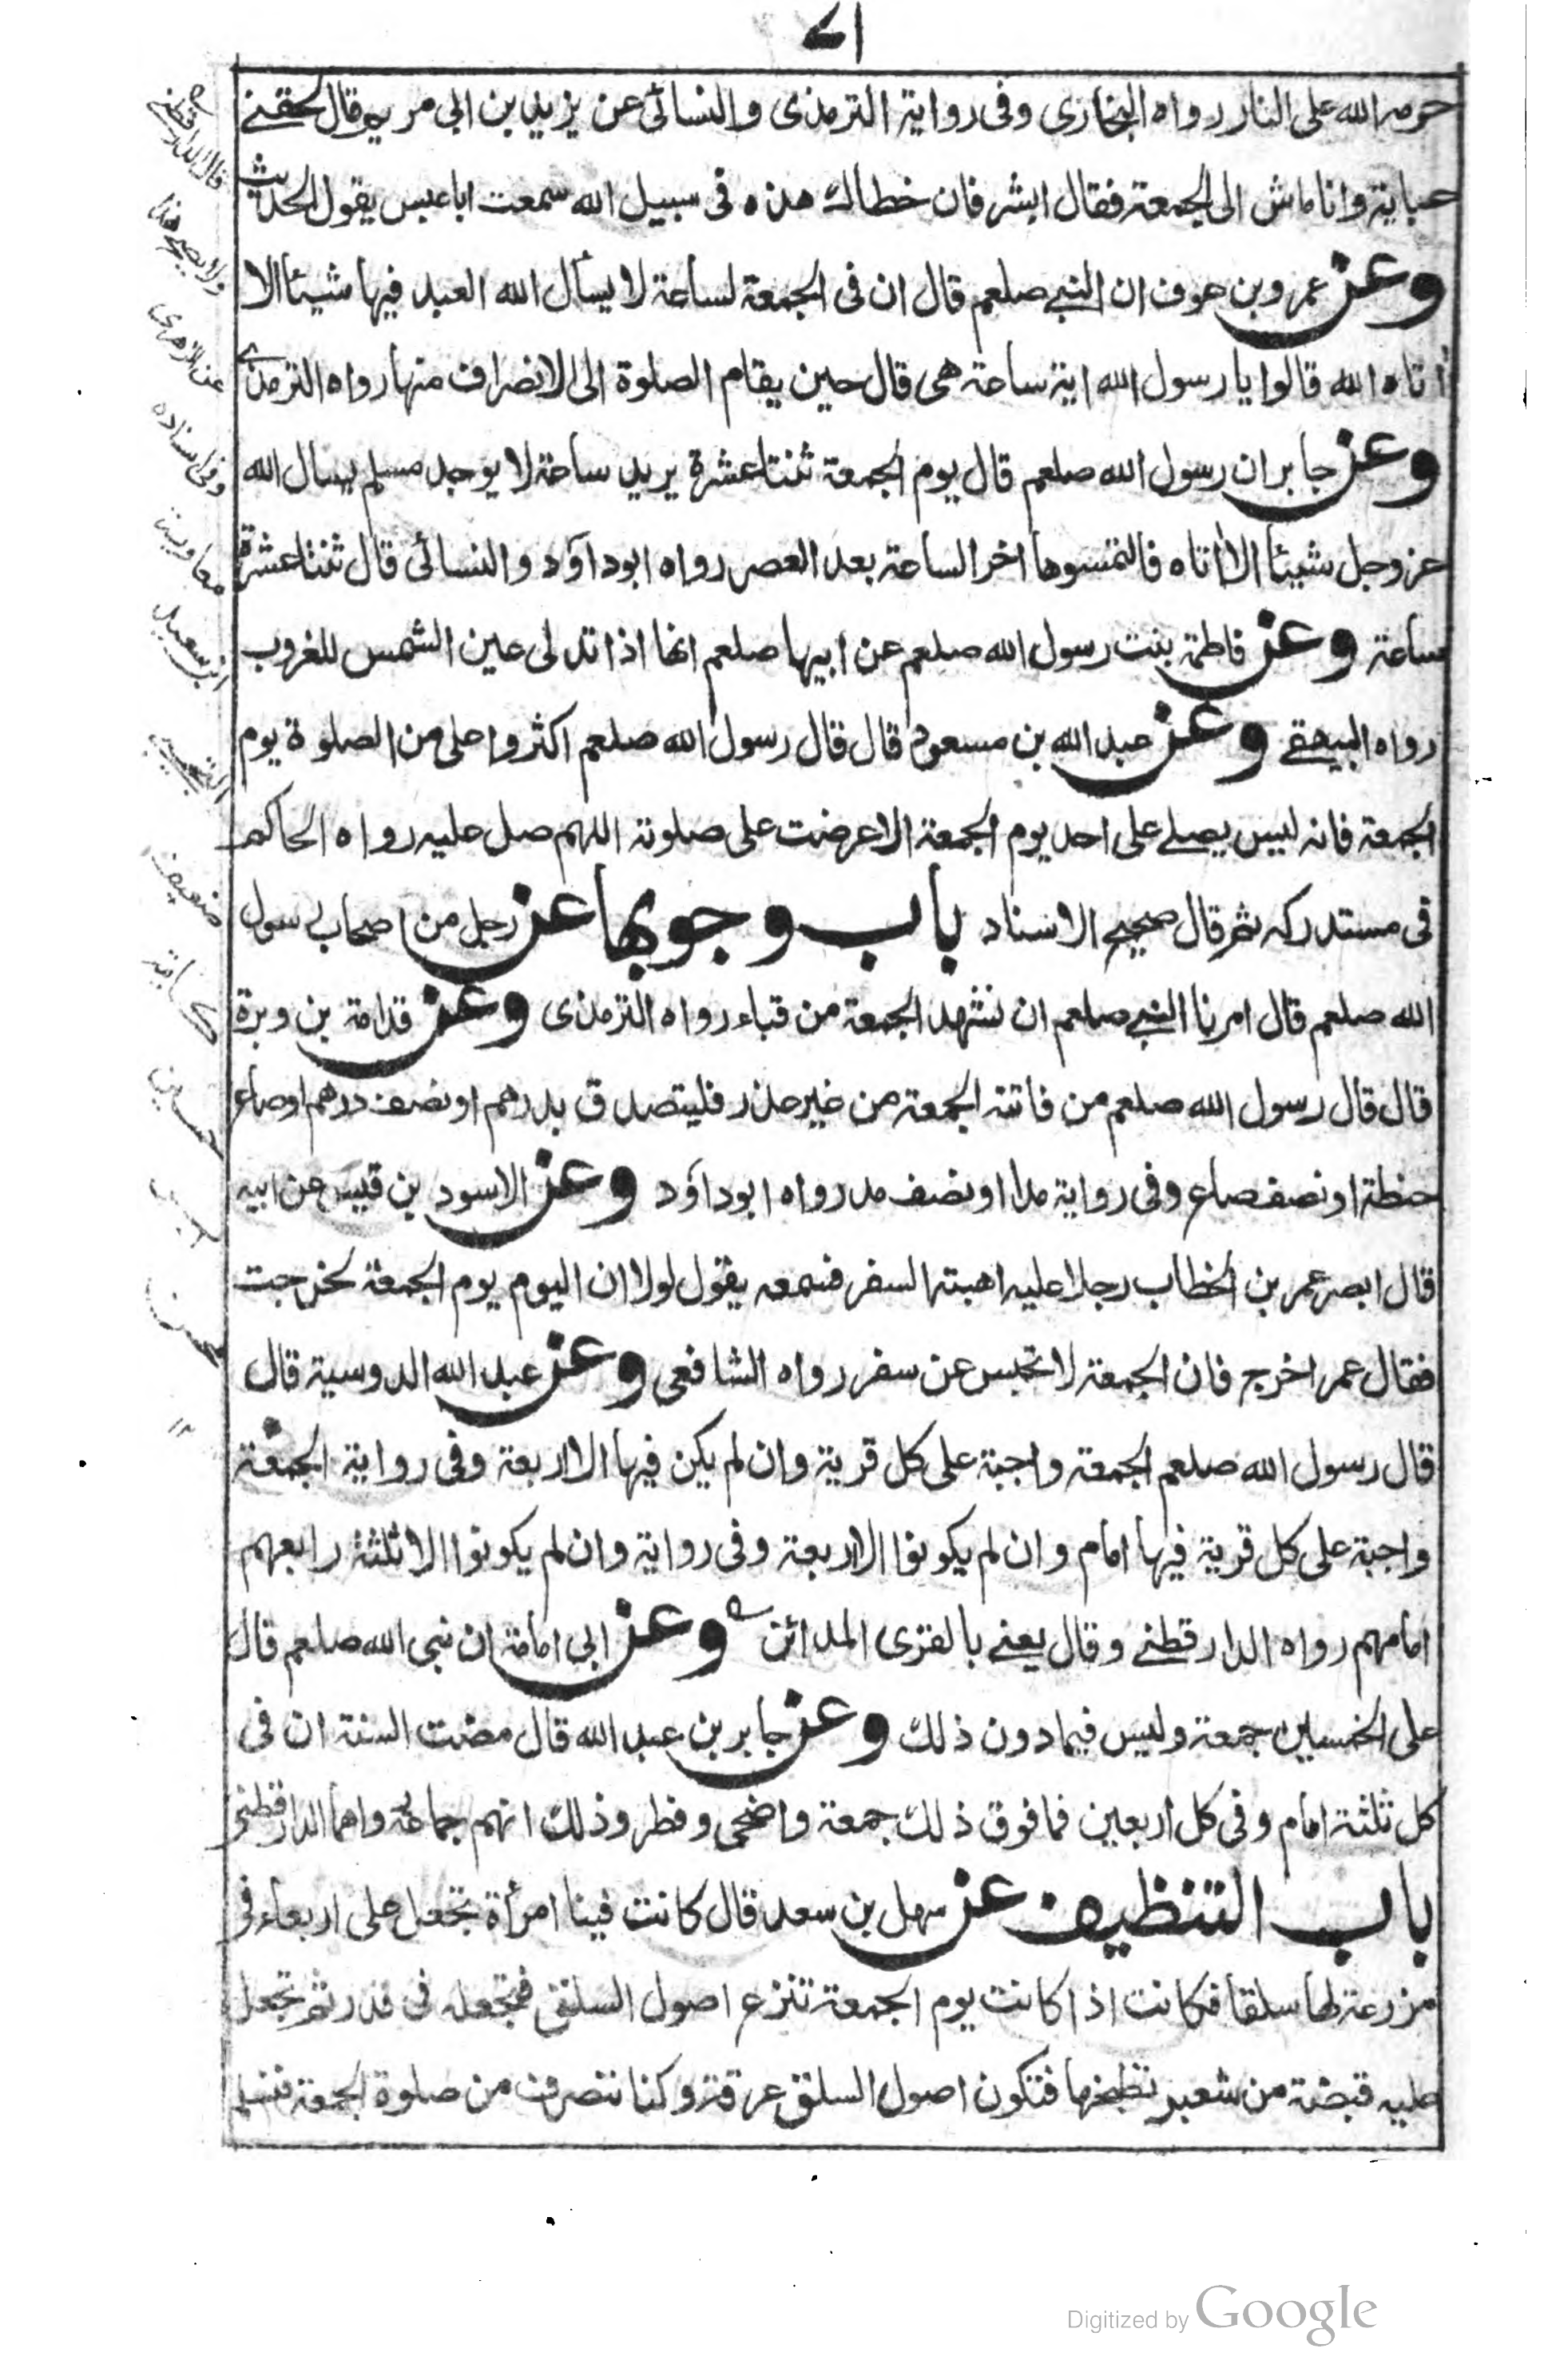 ٧١
حرمه الله على النار رواه البخارى وفى رواية الترمذى والنسائى عن يزيد بن ابى مريم قال لحقنى
عباية وانا ماش الى الجمعة فقال ابشر فان خطاك هذه فى سبيل الله سمعت ابا عبس يقول الحديث
وعن عمرو بن عوف ان النبى صلعم قال ان فى الجمعة لساعة لا يسأل الله العبد فيها شيئا الا
أتاه الله قالوا يا رسول الله اية ساعة هى قال حين يقام الصلوة الى الانصراف منها رواه الترمذى
وعن جابر ان رسول الله صلعم قال يوم الجمعة ثنتا عشرة يريد ساعة لا يوجد مسلم يسال الله
عز وجل شيئا الا اتاه فالتمسوها اخر الساعة بعد العصر رواه ابو داود والنسائى قال ثنتا عشرة
ساعة وعن فاطمة بنت رسول الله صلعم عن ابيها صلعم انها اذا تدلى عين الشمس للغروب
رواه البيهقى وعن عبد الله بن مسعود قال قال رسول الله صلعم اكثروا على من الصلوة يوم
الجمعة فانه ليس يصلى على احد يوم الجمعة الا عرضت على صلوته اللهم صل عليه رواه الحاكم
فى مستدركه ثم قال صحيح الاسناد باب وجوبها عن رجل من اصحاب رسول
الله صلعم قال امرنا النبى صلعم ان نشهد الجمعة من قباء رواه الترمذى وعن قدامة بن وبرة
قال قال رسول الله صلعم من فاتته الجمعة من غير عذر فليتصدق بدرهم او نصف درهم او صاع
حنطة او نصف صاع وفى رواية مدا او نصف مد رواه ابو داود وعن الاسود بن قيس عن ابيه
قال ابصر عمر بن الخطاب رجلا عليه اهبته السفر فسمعه يقول لولا ان اليوم يوم الجمعة لخرجت
فقال عمر اخرج فان الجمعة لا تحبس عن سفر رواه الشافعى وعن عبد الله الدوسية قال
قال رسول الله صلعم الجمعة واجبة على كل قرية وان لم يكن فيها الا اربعة وفى رواية الجمعة
واجبة على كل قرية فيها امام وان لم يكونوا الا اربعة وفى رواية وان لم يكونوا الا ثلثة رابعهم
امامهم رواه الدارقطنى وقال يعنى بالقرى المدائن وعن ابى امامة ان نبى الله صلعم قال
على الخمسين جمعة وليس فيما دون ذلك وعن جابر بن عبد الله قال مضت السنة ان فى
كل ثلثة امام وفى كل اربعين فما فوق ذلك جمعة واضحى وفطر وذلك انهم جماعة رواهما الدارقطنى
باب التنظيف عن سهل بن سعد قال كانت فينا امرأة تجعل على اربعاء فى
مزرعة لها سلقا فكانت اذا كانت يوم الجمعة تنزع اصول السلق فتجعله فى قدر ثم تجعل
عليه قبضة من شعير تطبخها فتكون اصول السلق عرقة وكنا ننصرف من صلوة الجمعة فنسلم
قال الدارقطنى
ولا يصح هذا
عن الزهرى
وفى اسناده
معاوية
ابن سعيد
التجيبى
ضعيف
Digitized by Google